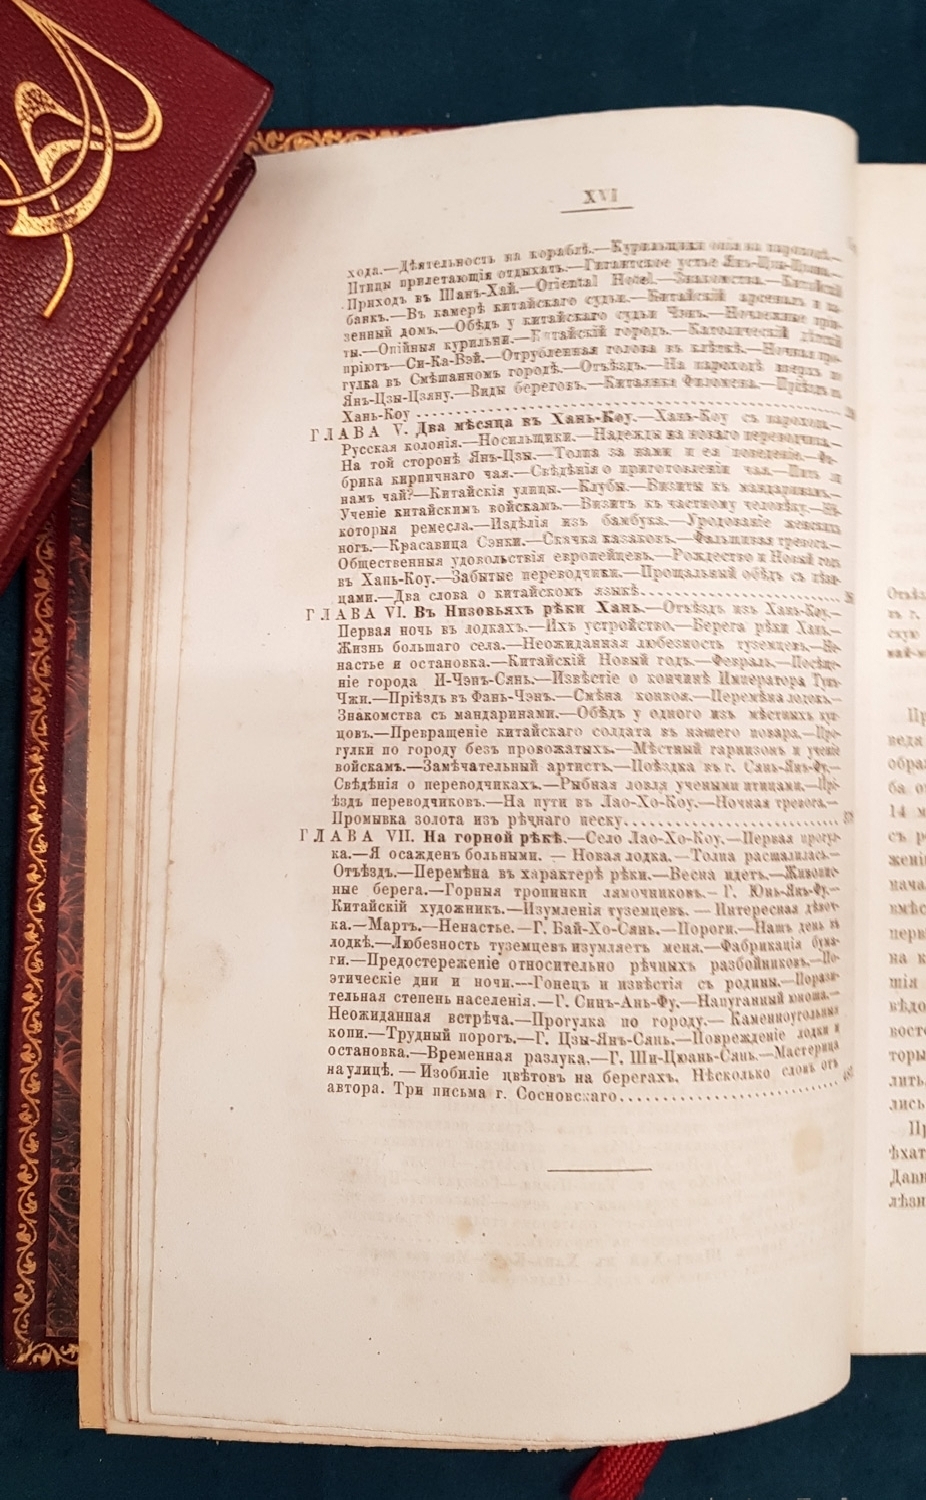 XVI
хода.—Дѣятельность на кораблѣ.—Курильщики опія на пароходѣ.—
Птицы прилетающія отдыхать.—Гигантское устье Янъ-Цзы-Цзяна.—
Приходъ въ Шанъ-Хай.—Oriental Hotel.—Знакомства.—Китайскій
банкъ.—Въ камерѣ китайскаго судьи.—Китайскій арсеналъ и ка-
зенный домъ.—Обѣдъ у китайскаго судьи Чэнъ.—Ночлежные прію-
ты.—Опійныя курильни.—Китайскій городъ.—Католическій дѣтскій
пріютъ.—Си-Ка-Вэй.—Отрубленная голова въ клѣткѣ.—Ночная про-
гулка въ Смѣшанномъ городѣ.—Отъѣздъ.—На пароходѣ вверхъ по
Янъ-Цзы-Цзяну.—Виды береговъ.—Китаянка Филомена.—Пріѣздъ въ
Хань-Коу
ГЛАВА V. Два мѣсяца въ Хань-Коу.—Хань-Коу съ парохода.—
Русская колонія.—Носильщики.—Надежды на новаго переводчика.—
На той сторонѣ Янъ-Цзы.—Толпа за нами и ея поведеніе.—Фа-
брика кирпичнаго чая.—Свѣдѣнія о приготовленіи чая.—Пить ли
намъ чай?—Китайскія улицы.—Клубы.—Визиты къ мандаринамъ.—
Ученіе китайскимъ войскамъ.—Визитъ къ частному человѣку.—Нѣ-
которыя ремесла.—Издѣлія изъ бамбука.—Уродованіе женскихъ
ногъ.—Красавица Сэнки.—Скачка казаковъ.—Фальшивая тревога.—
Общественныя удовольствія европейцевъ.—Рождество и Новый годъ
въ Хань-Коу.—Забытые переводчики.—Прощальный обѣдъ съ
цами.—Два слова о китайскомъ языкѣ
ГЛАВА VI. Въ Низовьяхъ рѣки Хань.—Отъѣздъ изъ Хань-Коу.—
Первая ночь въ лодкахъ.—Ихъ устройство.—Берега рѣки Хань.—
Жизнь большаго села.—Неожиданная любезность туземцевъ.—Не-
настье и остановка.—Китайскій Новый годъ.—Февраль.—Посѣще-
ніе города И-Чэнъ-Сянь.—Извѣстіе о кончинѣ Императора Тунъ-
Чжи.—Пріѣздъ въ Фань-Чэнъ.—Смѣна конвоя.—Перемѣна лодокъ.—
Знакомства съ мандаринами.—Обѣдъ у одного изъ мѣстныхъ куп-
цовъ.—Превращеніе китайскаго солдата въ нашего повара.—Про-
гулки по городу безъ провожатыхъ.—Мѣстный гарнизонъ и ученіе
войскамъ.—Замѣчательный артистъ.—Поѣздка въ г. Сянь-Янъ-Фу.—
Свѣдѣнія о переводчикахъ.—Рыбная ловля учеными птицами.—Прі-
ѣздъ переводчиковъ.—На пути въ Лао-Хо-Коу.—Ночная тревога.—
Промывка золота изъ рѣчнаго песку
ГЛАВА VII. На горной рѣкѣ.—Село Лао-Хо-Коу.—Первая прогул-
ка.—Я осажденъ больными.—Новая лодка.—Толпа расшалилась.—
Отъѣздъ.—Перемѣна въ характерѣ рѣки.—Весна идетъ.—Живопис-
ные берега.—Горныя тропинки лямочниковъ.—Г. Юнь-Янъ-Фу.—
Китайскій художникъ.—Изумленія туземцевъ.—Интересная дѣвоч-
ка.—Мартъ.—Ненастье.—Г. Бай-Хо-Сянь.—Пороги.—Нашъ день въ
лодкѣ.—Любезность туземцевъ изумляетъ меня.—Фабрикація бума-
ги.—Предостереженіе относительно рѣчныхъ разбойниковъ.—По-
этическіе дни и ночи.—Гонецъ и извѣстія съ родины.—Порази-
тельная степень населенія.—Г. Синъ-Ань-Фу.—Напуганный юноша.—
Неожиданная встрѣча.—Прогулка по городу.—Каменноугольныя
копи.—Трудный порогъ.—Г. Цзы-Янъ-Сянь.—Поврежденіе лодки и
остановка.—Временная разлука.—Г. Ши-Цюань-Сянь.—Мастерица
на улицѣ.—Изобиліе цвѣтовъ на берегахъ. Нѣсколько словъ отъ
автора. Три письма г. Сосновскаго